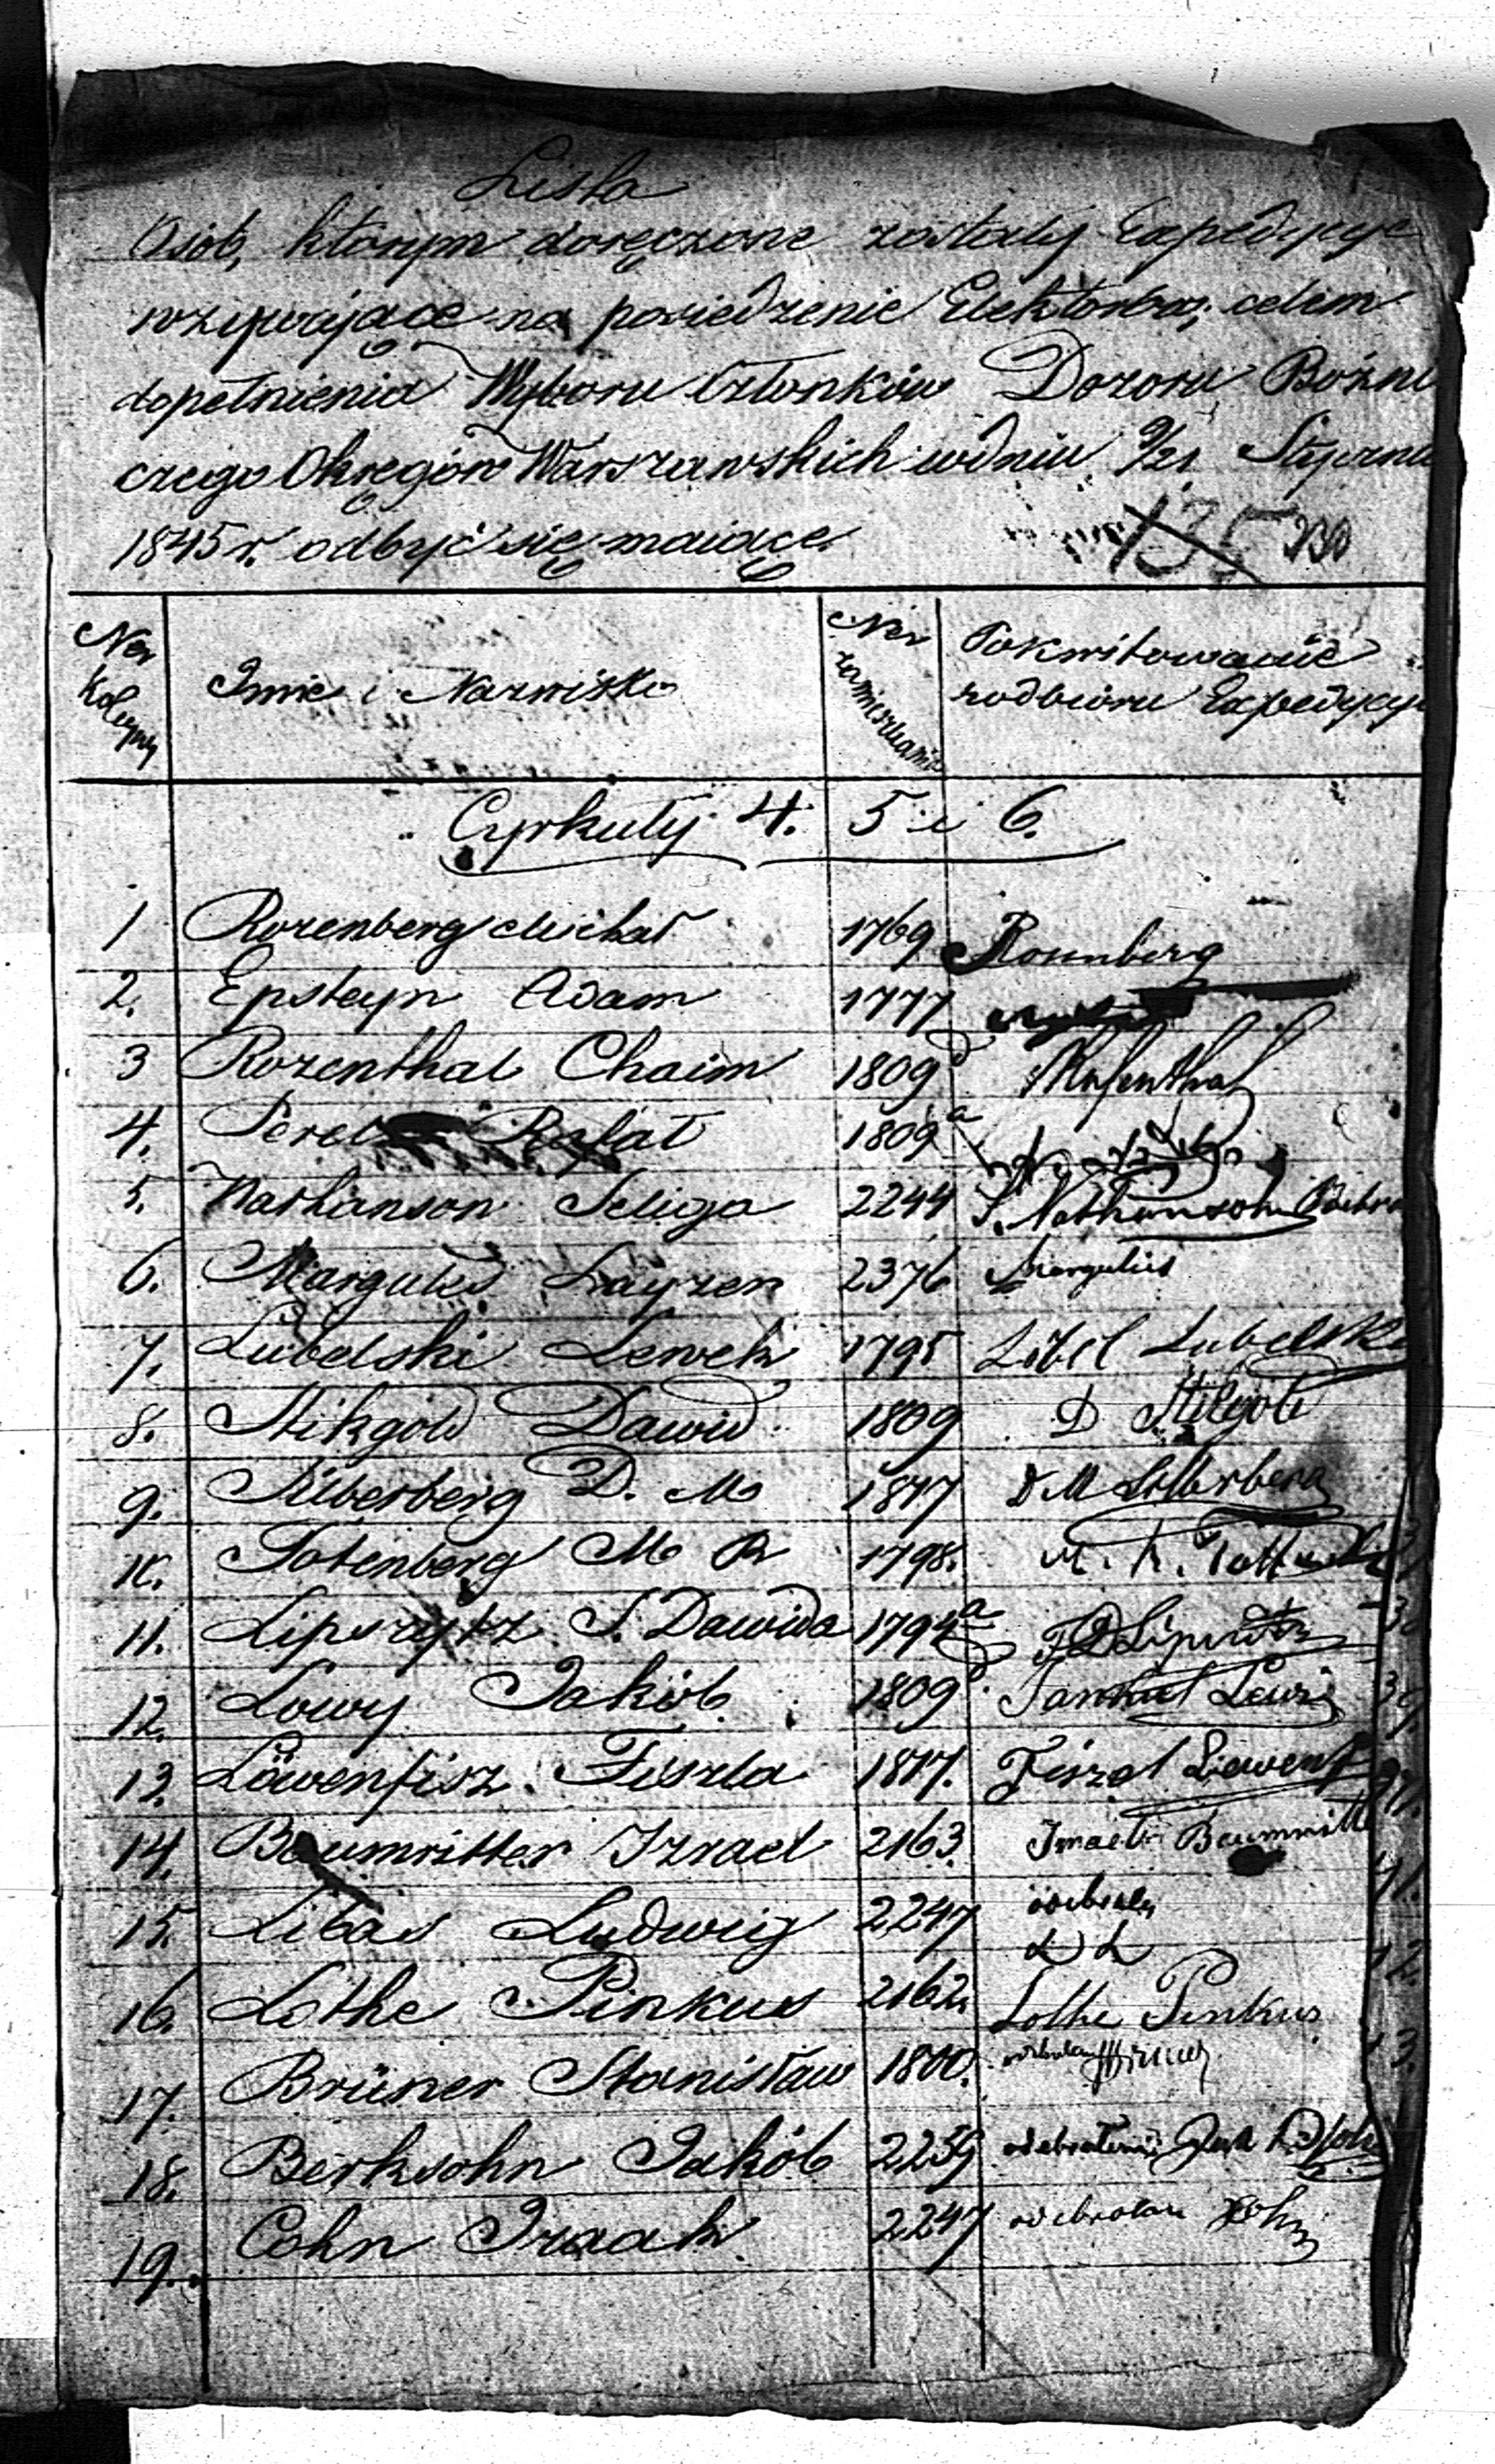 Lista
Osób, którym doręczone zostały Expedycye
wzywające na posiedzenie Elektorów, celem
dopełnienia Wyboru Członków Dozoru Bożni
czego Okręgów Warszawskich w dniu 9/21 Styczni
1845 r. odbyć się maiące.
135 230
Ner Kolejny Imie i Nazwisko Ner zamieszkania Pokwitowanie
zodbioru Expedycyi
Cyrkuły 4. 5 i 6.
1 Rozenberg Michał 1769 Rosenberg
2. Epsteyn Adam 1777
3 Rozenthal Chaim 1809 d Rosenthal
4. Perec Rafał 1809 a
5. Nathanson Seliga 2244 S. Nathansohn Odebra
6. Margules Layzer 2376 Margulies
7. Lubelski Lewek 1795 Lubelski
8. Stikgold Dawid 1809 D Stikgold
9. Silberberg D. M. 1877 D M Silberberg
10. Totenberg M R 1798. M. R.
11. Lipszytz S. Dawida 1794 a
12. Lowy Jakób 1809 d. Lewi
13. Löwenfisz Fiszla 1817. Fiszel Liewenf
14. Baumritter Izrael 2163. Baumritte
15. Libas Ludwig 2247 odebrałem
L L
16. Lothe Pinkus 2162 Lothe Pinkus
17. Brüner Stanisław 1800.
18. Berksohn Jakób 2239 odebrałem
19. Cohn Izaak 2247 odebrałem Kohn